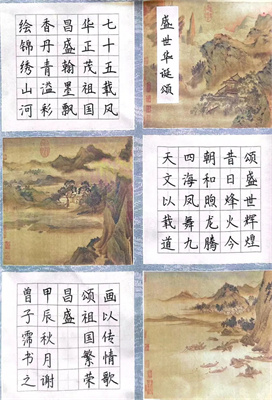 盛世华诞颂
七十五载风
华正茂祖国
昌盛翰墨飘
香丹青溢彩
绘锦绣山河
颂盛世辉煌
昔日烽火今
朝和煦龙腾
四海凤舞九
天文以载道
画以传情歌
颂祖国繁荣
昌盛
甲辰秋月谢
曾子书之